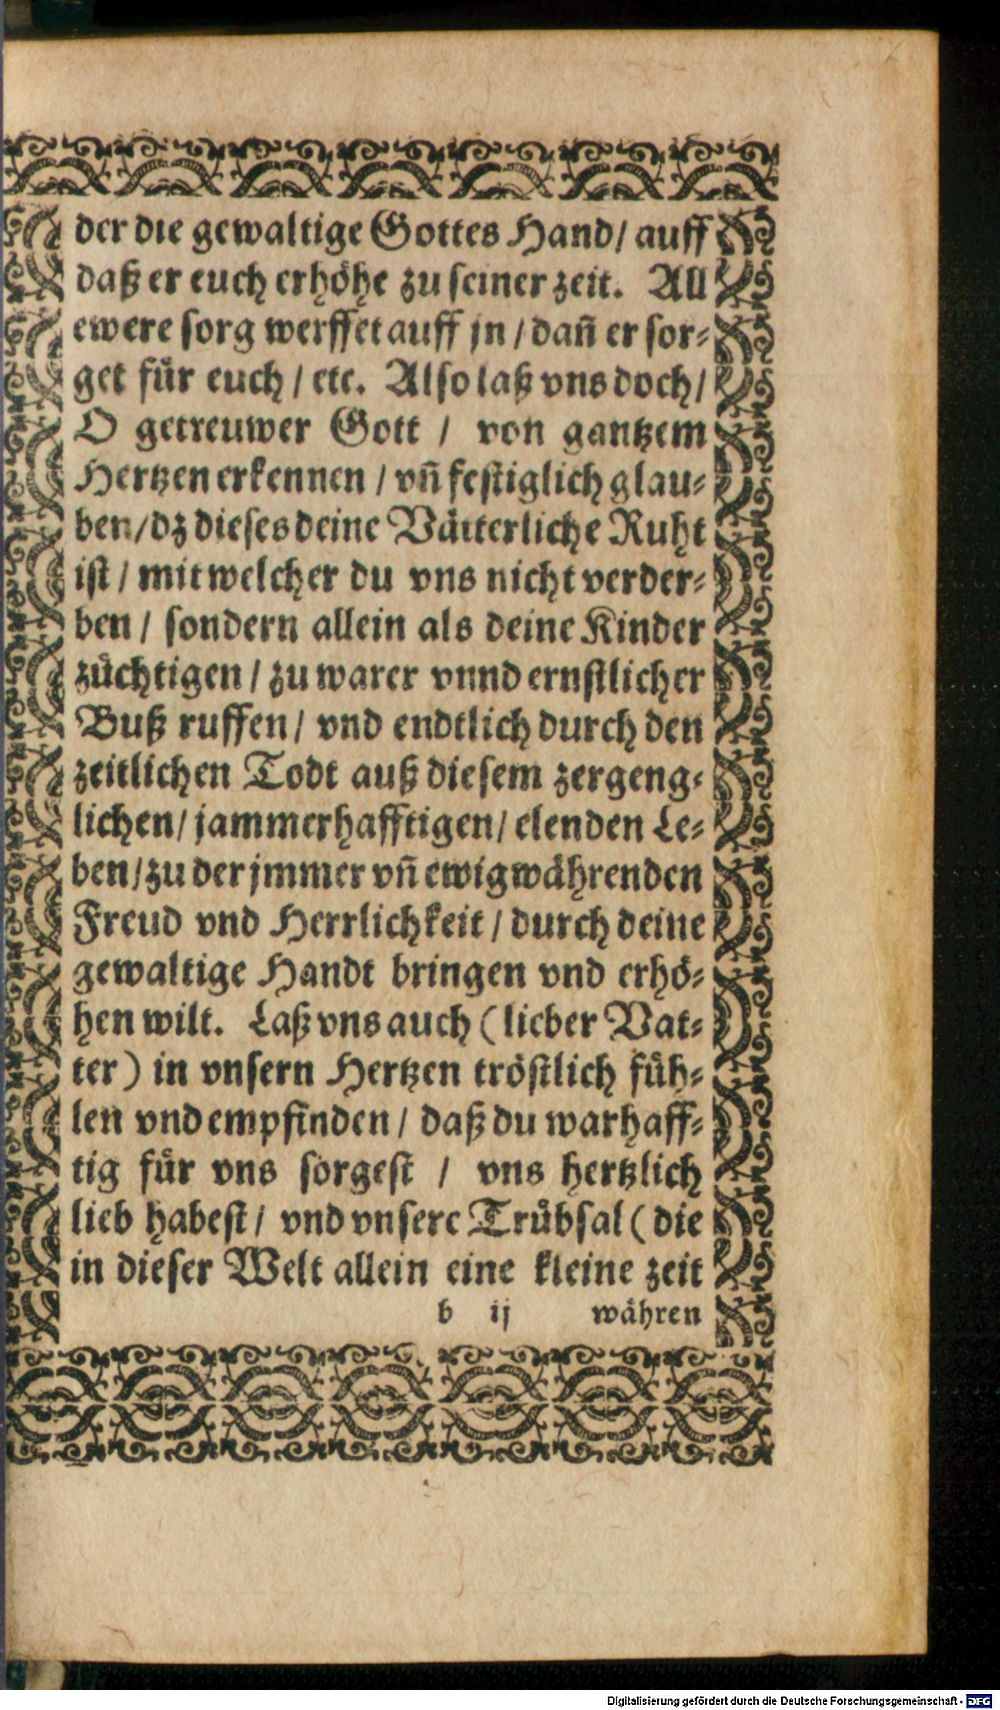 der die gewaltige Gottes Hand/ auff
daß er euch erhöhe zu seiner zeit. All
ewere sorg werffet auff jn / dañ er sor⸗
get für euch / etc. Also laß vns doch/
O getreuwer Gott / von gantzem
Hertzen erkennen / vñ festiglich glau⸗
ben/dz dieses deine Vätterliche Ruht
ist / mit welcher du vns nicht verder⸗
ben / sondern allein als deine Kinder
züchtigen / zu warer vnnd ernstlicher
Buß ruffen/ vnd endtlich durch den
zeitlichen Todt auß diesem zergeng⸗
lichen/ jammerhafftigen/ elenden Le⸗
ben/zu der jmmer vñ ewigwährenden
Freud vnd Herrlichkeit / durch deine
gewaltige Handt bringen vnd erhö⸗
hen wilt. Laß vns auch (lieber Vat⸗
ter) in vnsern Hertzen tröstlich füh⸗
len vnd empfinden / daß du warhaff⸗
tig für vns sorgest / vns hertzlich
lieb habest/ vnd vnsere Trübsal (die
in dieser Welt allein eine kleine zeit
b ij währen
Digitalisierung gefördert durch die Deutsche Forschungsgemeinschaft - DFG